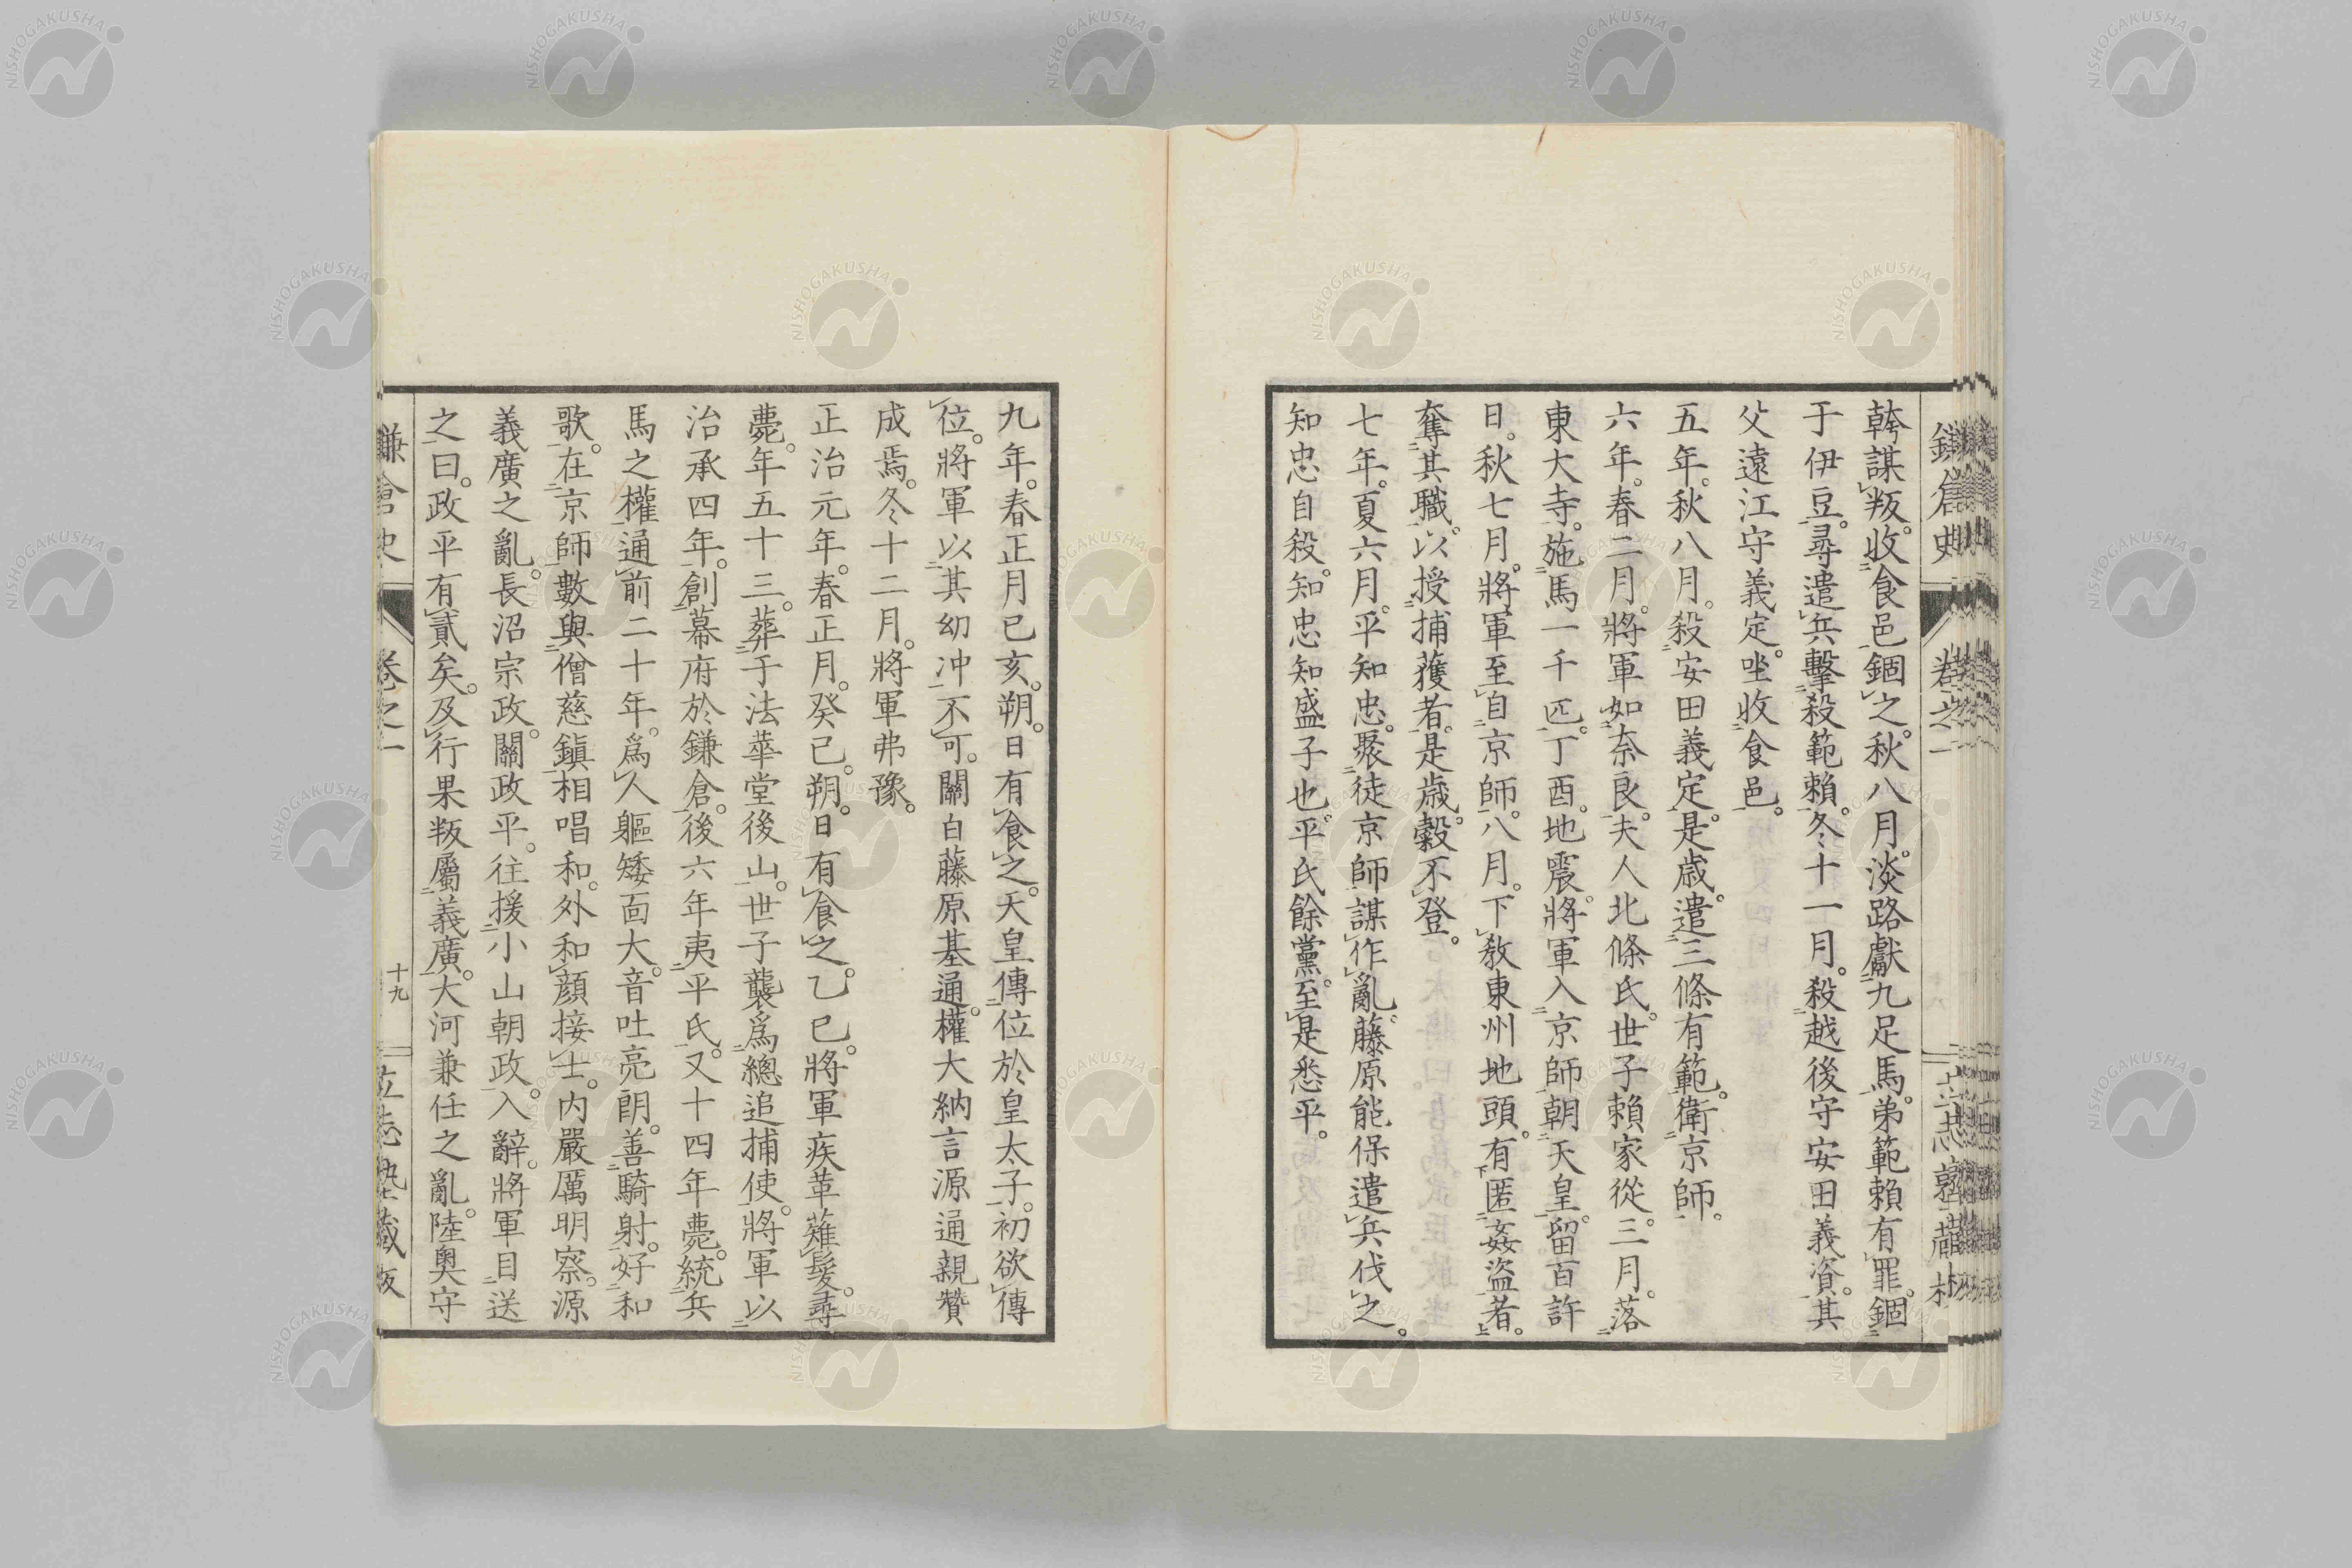 鎌倉史 卷之一 立志塾藏板
幹謀叛。收食邑錮之。秋八月。淡路獻九足馬。弟範賴有罪。錮
于伊豆。尋遣兵擊殺範賴。冬十一月。殺越後守安田義資。其
父遠江守義定。坐收食邑。
五年。秋八月。殺安田義定。是歳。遣三條有範。衛京師。
六年。春二月。將軍如奈良。夫人北條氏。世子賴家從。三月。落
東大寺。施馬一千匹。丁酉。地震。將軍入京師。朝天皇。留百許
日。秋七月。將軍至自京師。八月。下敎東州地頭。有匿姦盜者。
奪其職。以授捕獲者。是歳。穀不登。
七年。夏六月。平知忠。聚徒京師謀作亂。藤原能保遣兵伐之。
知忠自殺。知忠知盛子也。平氏餘黨。至是悉平。
九年。春正月己亥。朔。日有食之。天皇傳位於皇太子。初欲傳
位。將軍以其幼冲不可。關白藤原基通。權大納言源通親贊
成焉。冬十二月。將軍弗豫。
正治元年。春正月。癸巳。朔。日有食之。乙巳。將軍疾革薙髮。尋
薨。年五十三。葬于法華堂後山。世子襲爲總追捕使。將軍以
治承四年。創幕府於鎌倉。後六年夷平氏。又十四年薨。統兵
馬之權通前二十年。爲人軀矮面大。音吐亮朗。善騎射。好和
歌。在京師數與僧慈鎭相唱和。外和顔接士。内嚴厲明察。源
義廣之亂。長沼宗政。關政平。往援小山朝政。入辭。將軍目送
之曰。政平有貳矣。及行果叛屬義廣。大河兼任之亂。陸奥守
鎌倉史 卷之一 十九 立志塾藏板